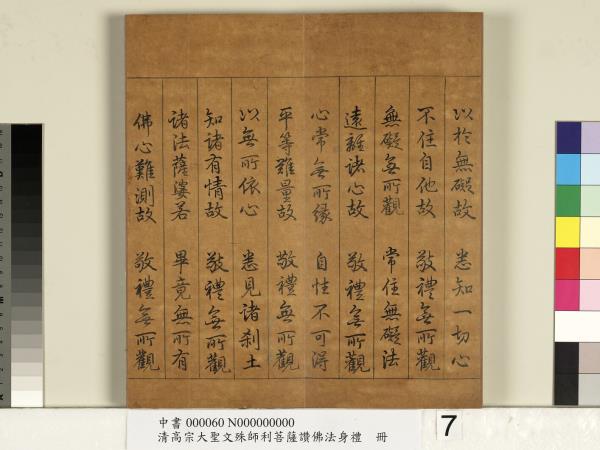 以於無礙故 悉知一切心
不住自他故 敬禮無所觀
無礙無所觀 常住無礙法
遠離諸心故 敬禮無所觀
心常無所緣 自性不可得
平等難量故 敬禮無所觀
以無所依心 悉見諸剎土
知諸有情故 敬禮無所觀
諸法薩婆若 畢竟無所有
佛心難測故 敬禮無所觀
中書 000060 N000000000
清高宗大聖文殊師利菩薩讚佛法身禮 冊
7